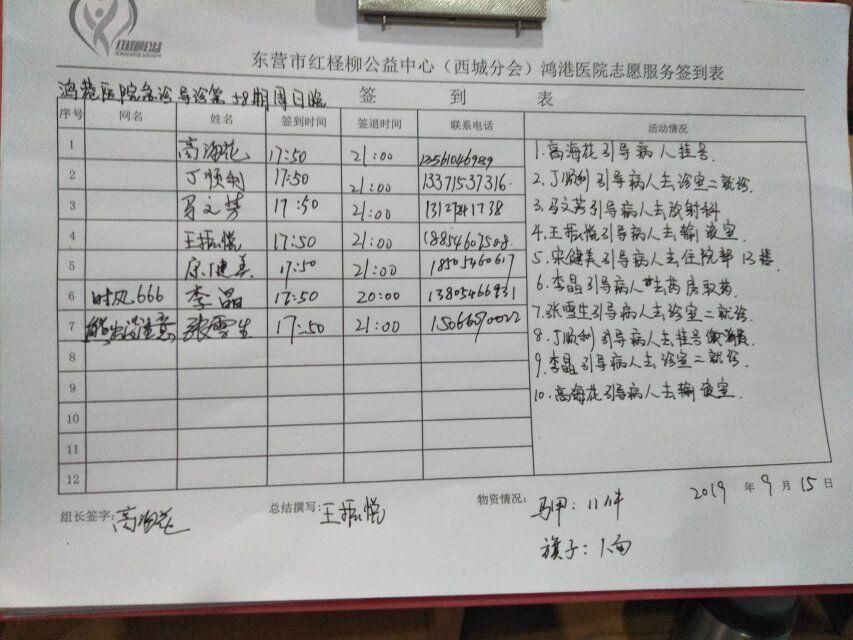 红柽柳公益
东营市红柽柳公益中心（西城分会）鸿港医院志愿服务签到表
鸿港医院急诊导诊第58期周日晚 签 到 表
序号 网名 姓名 签到时间 签退时间 联系电话 活动情况
1 高海花 17:50 21:00
2 丁顺利 17:50 21:00 13371537316.
3 马文芳 17:50 21:00
4 王振悦 17:50 21:00
5 宋健美 17:50 21:00 18505460617
6 时风.666 李晶 17:50 20:00 13805466931
7 张雪生 17:50 21:00
8
9
10
11
12
1.高海花引导病人挂号.
2.丁顺利引导病人去诊室二就诊.
3.马文芳引导病人去放射科
4.王振悦引导病人去输液室.
5.宋健美引导病人去住院部13楼.
6.李晶引导病人去药房取药.
7.张雪生引导病人去诊室二就诊.
8.丁顺利引导病人去挂号缴费
9.李晶引导病人去诊室二就诊.
10.高海花引导病人去输液室.
组长签字: 高海花 总结撰写: 王振悦 物资情况: 马甲: 11件 2019 年 9 月 15 日
旗子: 1面